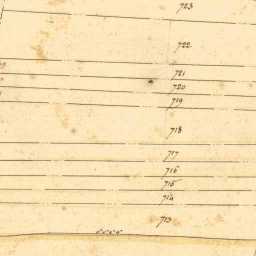 723
722
721
720
719
718
717
716
715
714
713